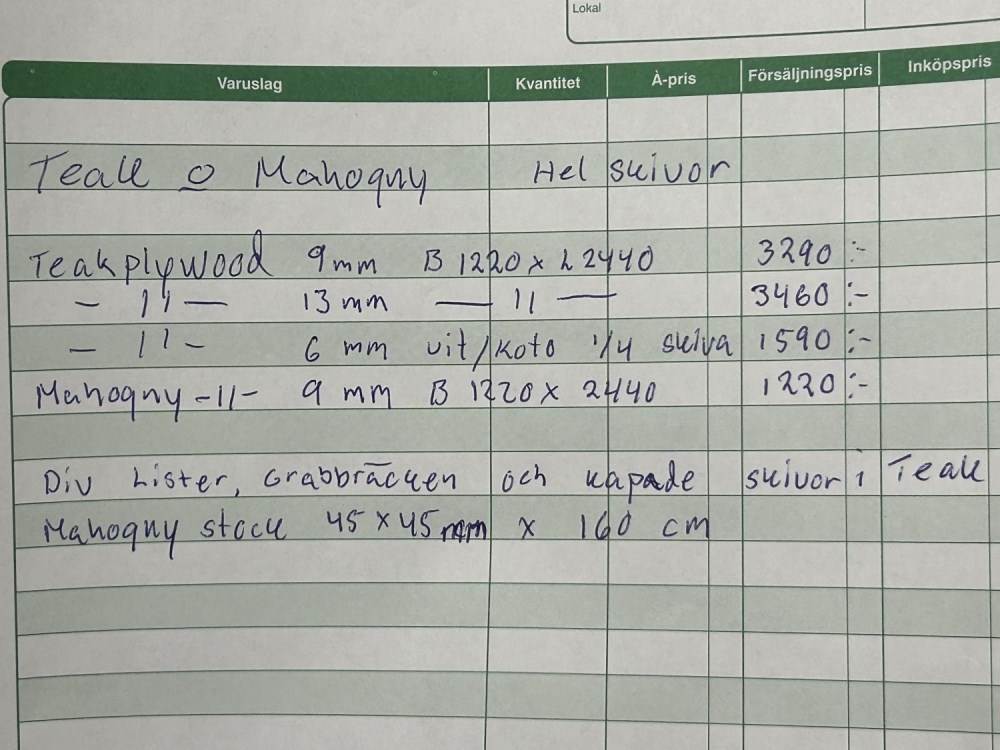 Lokal
Varuslag Kvantitet À-pris Försäljningspris Inköpspris
Teak o Mahogny Hel skivor
Teakplywood 9mm B 1220 x L 2440 3290:-
— 11 — 13 mm — 11 — 3460:-
— 11 — 6 mm vit/koto 1/4 skiva 1590:-
Mahogny -11- 9 mm B 1220 x 2440 1220:-
Div Lister, Grabbräcken och kapade skivor i Teak
Mahogny stock 45 x 45 mm x 160 cm